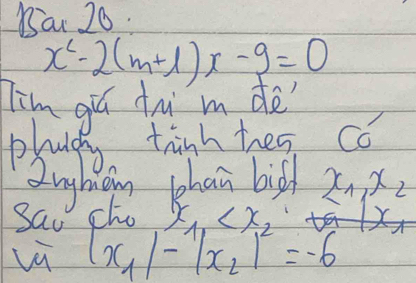 Bài 20:
x² - 2(m+1)x - 9 = 0
Tìm giá trị m để
phương trình trên có
2 nghiệm phân biệt x₁, x₂
sao cho x₁ < x₂
và |x₁| - |x₂| = -6